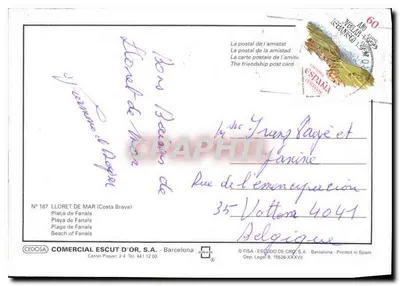 La postal de l'amistat
La postal de la amistad
La carte postale de l'amitié
The friendship post card
60
ESPAÑA
Bons Baisers de
Lloret de Mar
et
Janine
Rue de l'emencipation
35 Vottem 4041
Belgique
CPHIL
Nº 187 LLORET DE MAR (Costa Brava)
Platja de Fanals
Playa de Fanals
Plage de Fanals
Beach of Fanals
COMERCIAL ESCUT D'OR, S.A. - Barcelona
© FISA - ESCUDO DE ORO, S.A. Printed in Spain